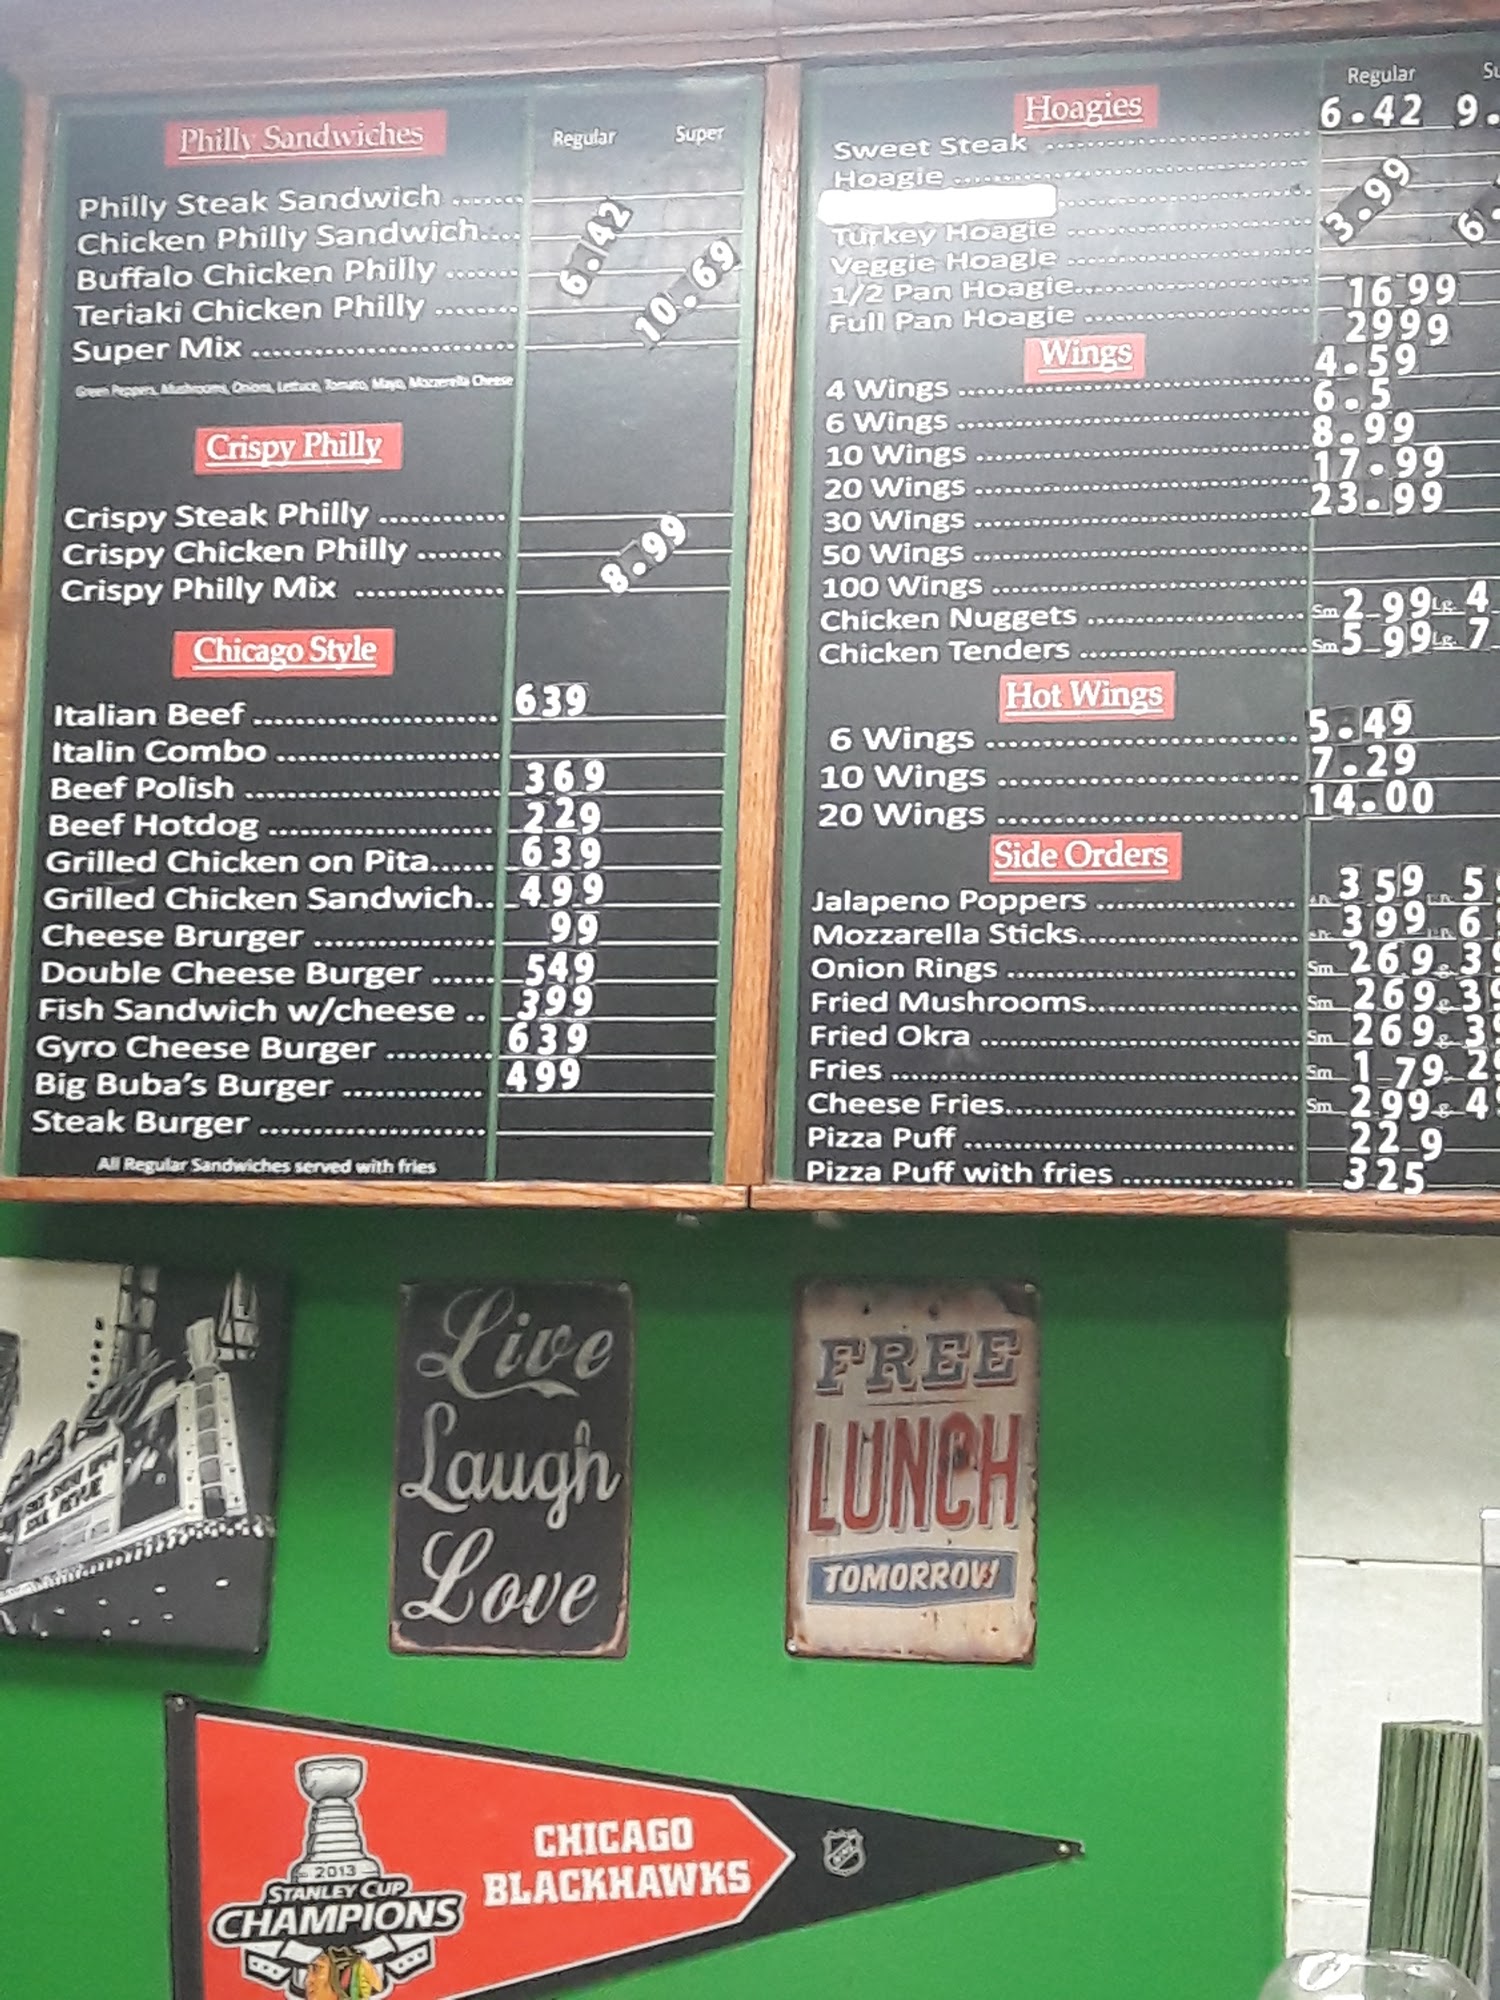 Philly Sandwiches Regular Super
Philly Steak Sandwich ........
Chicken Philly Sandwich.... 6.42
Buffalo Chicken Philly ....... 10.69
Teriaki Chicken Philly ........
Super Mix ..........................
Green Peppers, Mushrooms, Onions, Lettuce, Tomato, Mayo, Mozzerella Cheese
Crispy Philly
Crispy Steak Philly .............
Crispy Chicken Philly ........ 8.99
Crispy Philly Mix ...............
Chicago Style
Italian Beef ......................... 639
Italin Combo .......................
Beef Polish .......................... 369
Beef Hotdog ....................... 229
Grilled Chicken on Pita...... 639
Grilled Chicken Sandwich.. 499
Cheese Brurger .................. 99
Double Cheese Burger ...... 549
Fish Sandwich w/cheese .. 399
Gyro Cheese Burger .......... 639
Big Buba's Burger .............. 499
Steak Burger .......................
All Regular Sandwiches served with fries
Regular
Hoagies 6.42 9.
Sweet Steak ..............................
Hoagie ......................................
Turkey Hoagie ........................... 3.99 6.
Veggie Hoagie ...........................
1/2 Pan Hoagie.......................... 16 99
Full Pan Hoagie ......................... 2999
Wings 4.59
4 Wings ..................................... 6.5
6 Wings ..................................... 8.99
10 Wings ................................... 17.99
20 Wings ................................... 23.99
30 Wings ...................................
50 Wings ...................................
100 Wings .................................
Chicken Nuggets ...................... Sm 2 99 Lg. 4
Chicken Tenders ....................... Sm 5 99 Lg. 7
Hot Wings
6 Wings .................................. 5.49
10 Wings ................................ 7.29
20 Wings ................................ 14.00
Side Orders
Jalapeno Poppers ..................... 3 59 5
Mozzarella Sticks....................... 3 99 6
Onion Rings .............................. Sm 269 3
Fried Mushrooms...................... Sm 269 3
Fried Okra ................................. Sm 269 3
Fries .......................................... Sm 1 79 2
Cheese Fries.............................. Sm 299 4
Pizza Puff .................................. 22 9
Pizza Puff with fries .................. 325
Live
Laugh
Love
FREE
LUNCH
TOMORROW
CHICAGO
BLACKHAWKS
NHL
2013
STANLEY CUP
CHAMPIONS